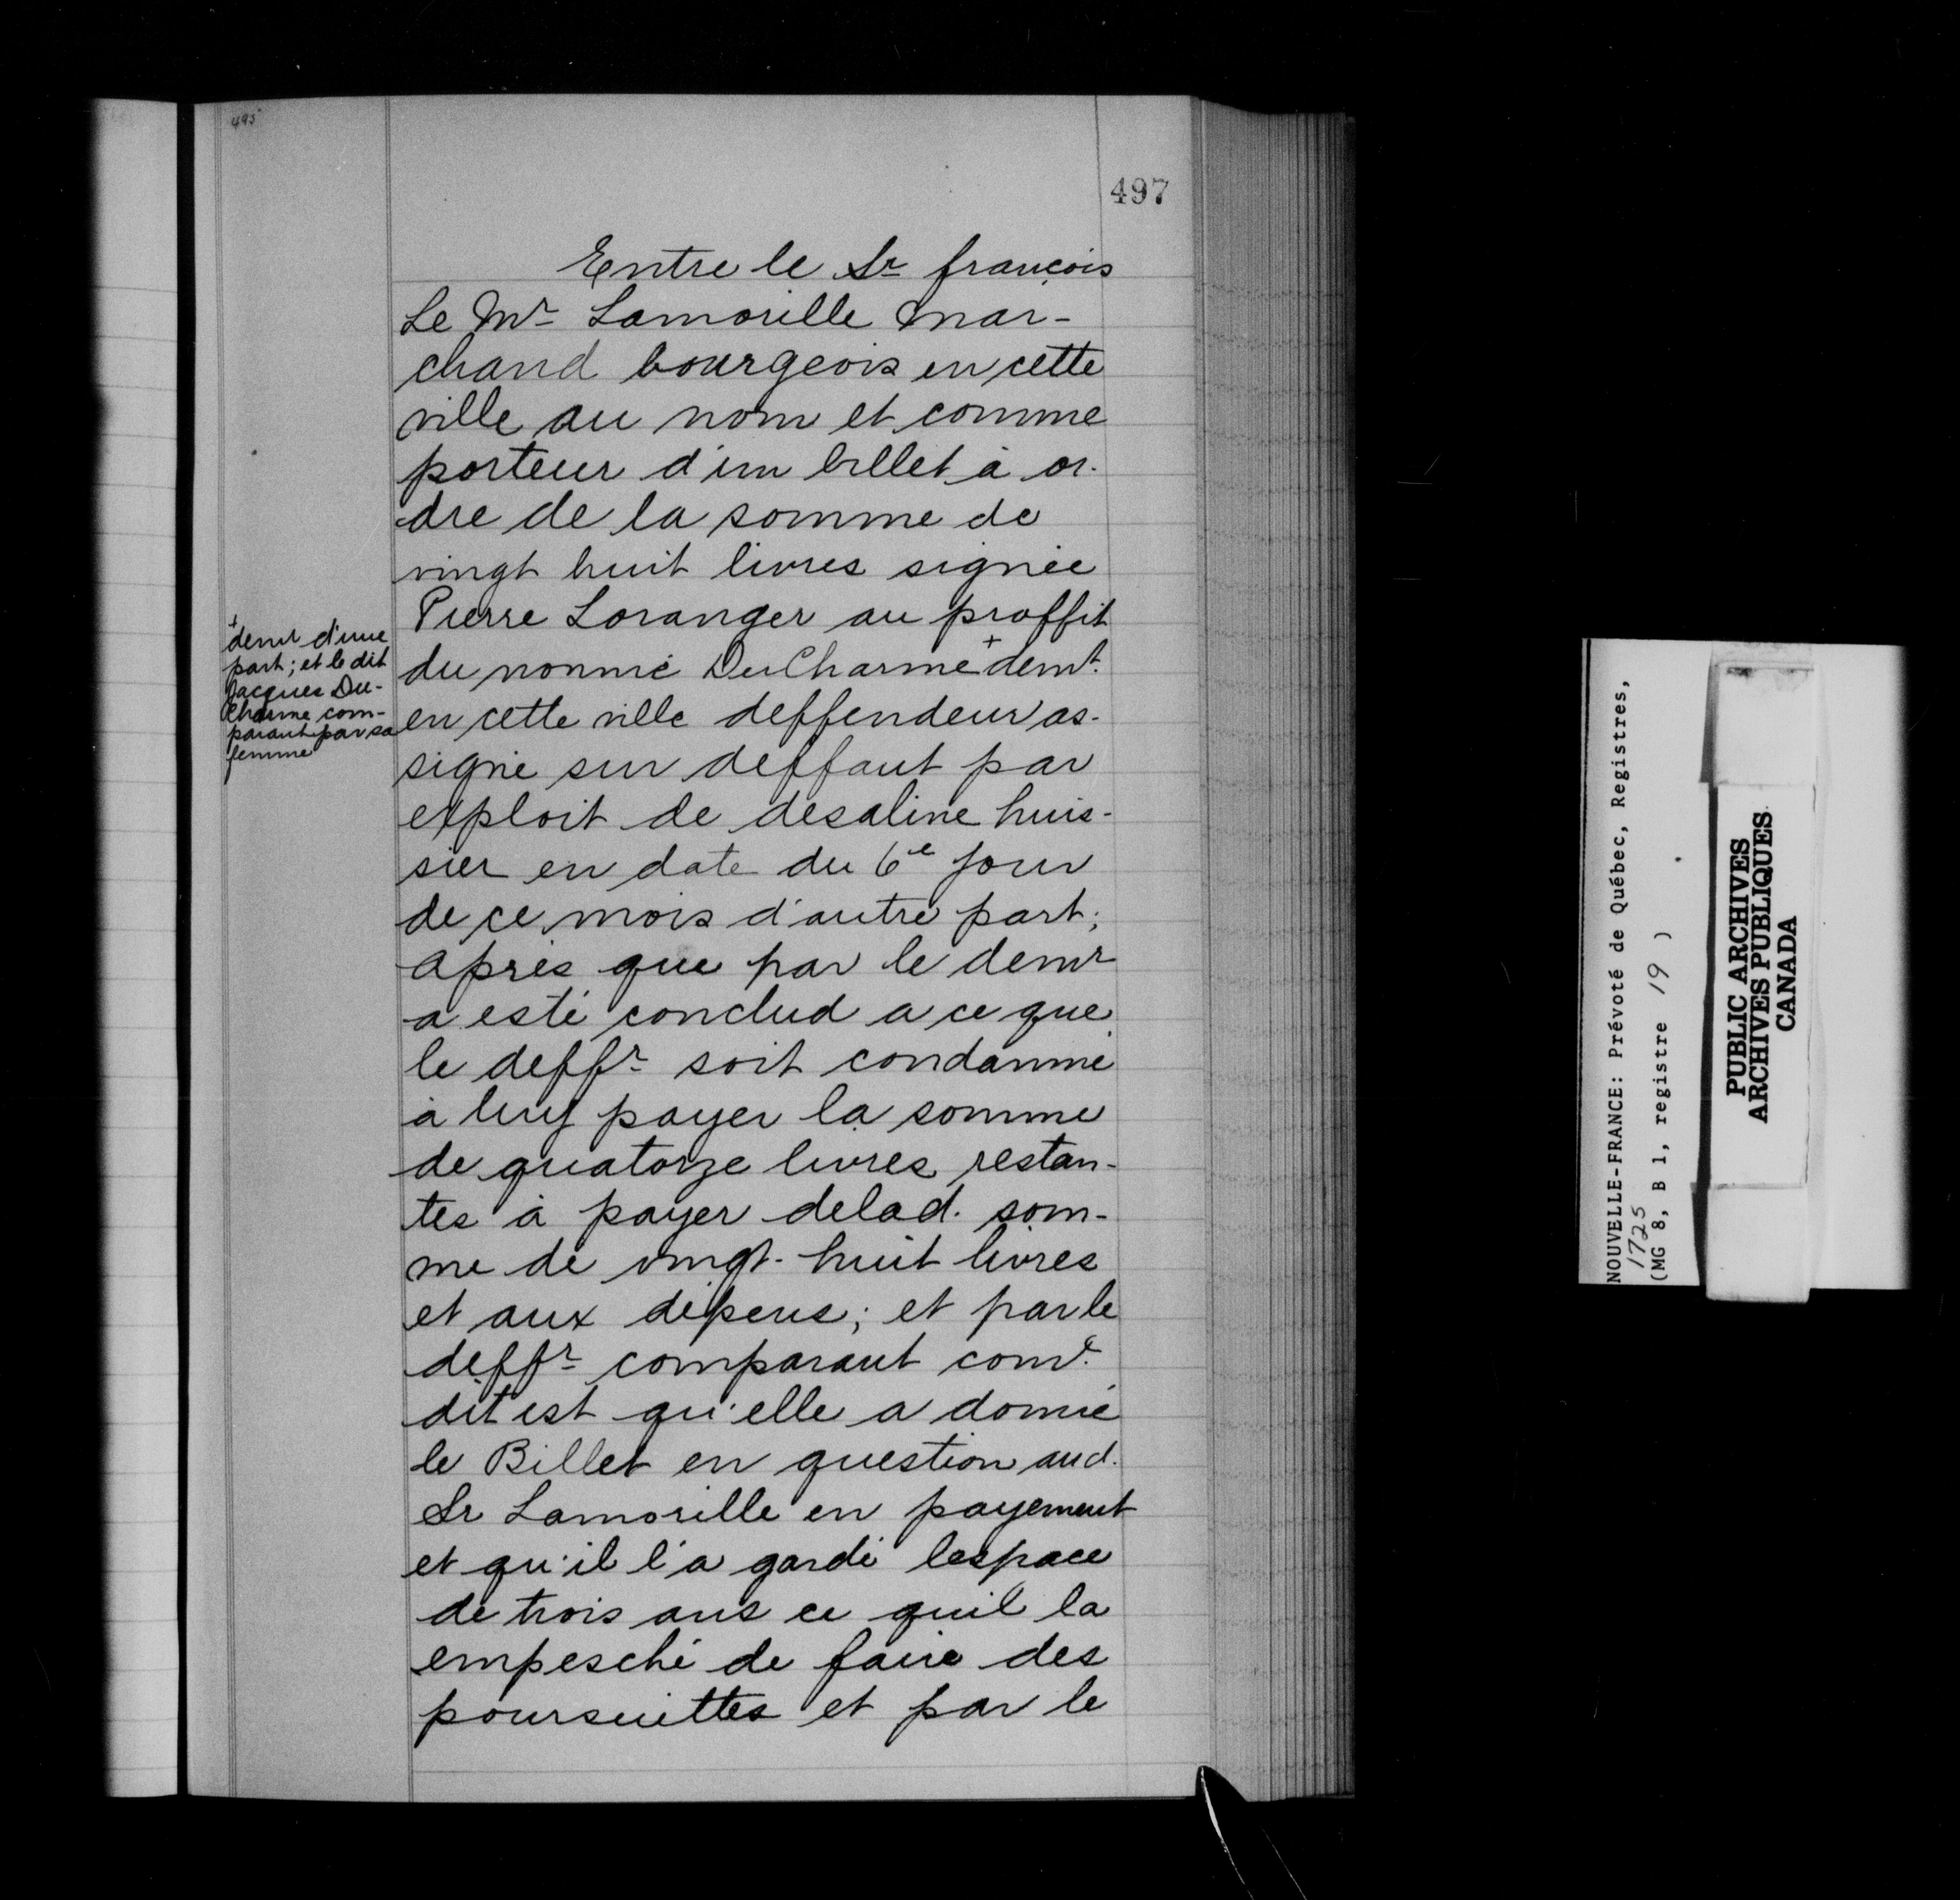 495
497
Entre le Sr françois
Le Mr Lamorille Mar-
chand bourgeois en cette
ville au nom et comme
porteur d'un billet à or-
dre de la somme de
vingt huit livres signée
Pierre Loranger au proffit
du nommé DuCharme + demt.
en cette ville deffendeur as-
signé sur deffaut par
exploit de desaline huis-
sier en date du 6e jour
de ce mois d'autre part;
après que par le demr
a esté conclud a ce que
le deffr soit condamné
à luy payer la somme
de quatorze livres restan-
tes à payer delad. som-
me de vingt-huit livres
et aux dépens; et par le
deffr comparant come
dit est qu'elle a donné
le Billet en question aud.
Sr Lamorille en payement
et qu'il l'a gardé lespace
de trois ans ce quil la
empesché de faire des
poursuittes et par le
+
demr d'une
part; et le dit
Jacques Du-
Charme com-
parant par sa
femme
NOUVELLE-FRANCE: Prévoté de Québec, Registres,
1725
(MG 8, B 1, registre 19 )
PUBLIC ARCHIVES
ARCHIVES PUBLIQUES
CANADA